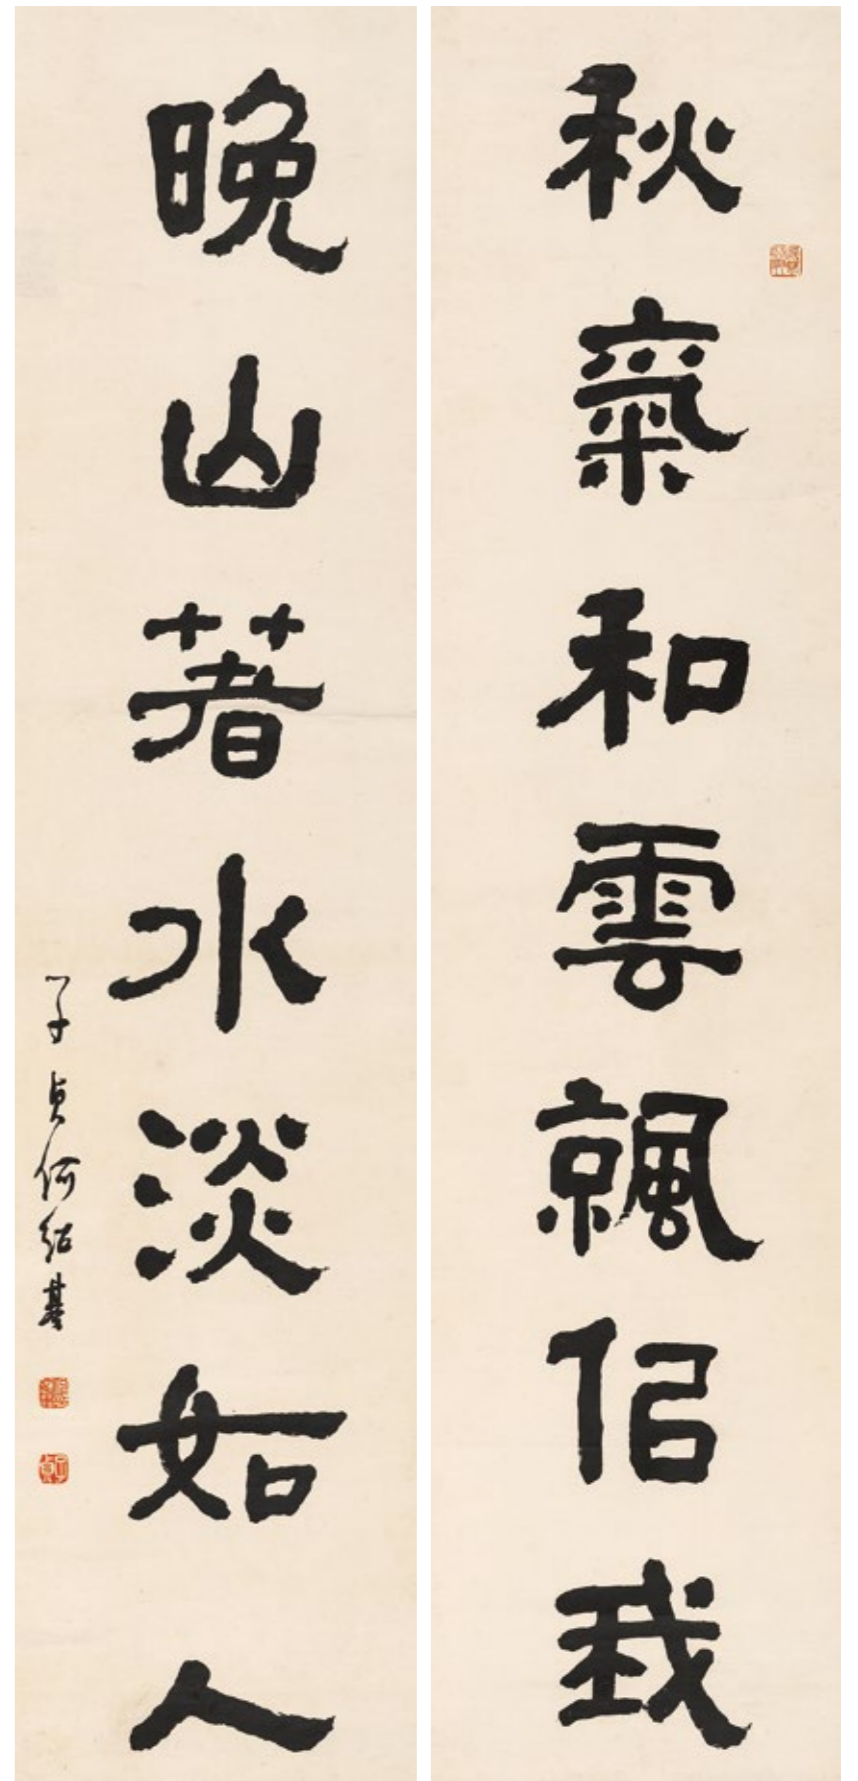 秋氣和雲飄佀我
晚山著水淡如人
子貞何紹基